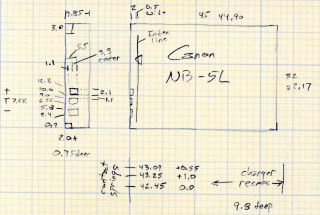 7.85-1
2 0.5
45 44.90
3.0
Index
line
Canon
NB-5L
.55
3.3
cover
1.1
32
32.17
12.3
10.6
9.0
6.75
5.8
3.4
2.1
1.1
+
T
-
0.9
2.0+
0.75 deep
+ 43.09 +0.55
43.25 +1.0
42.45 0.0
contact
springs
charger
recess
9.8 deep